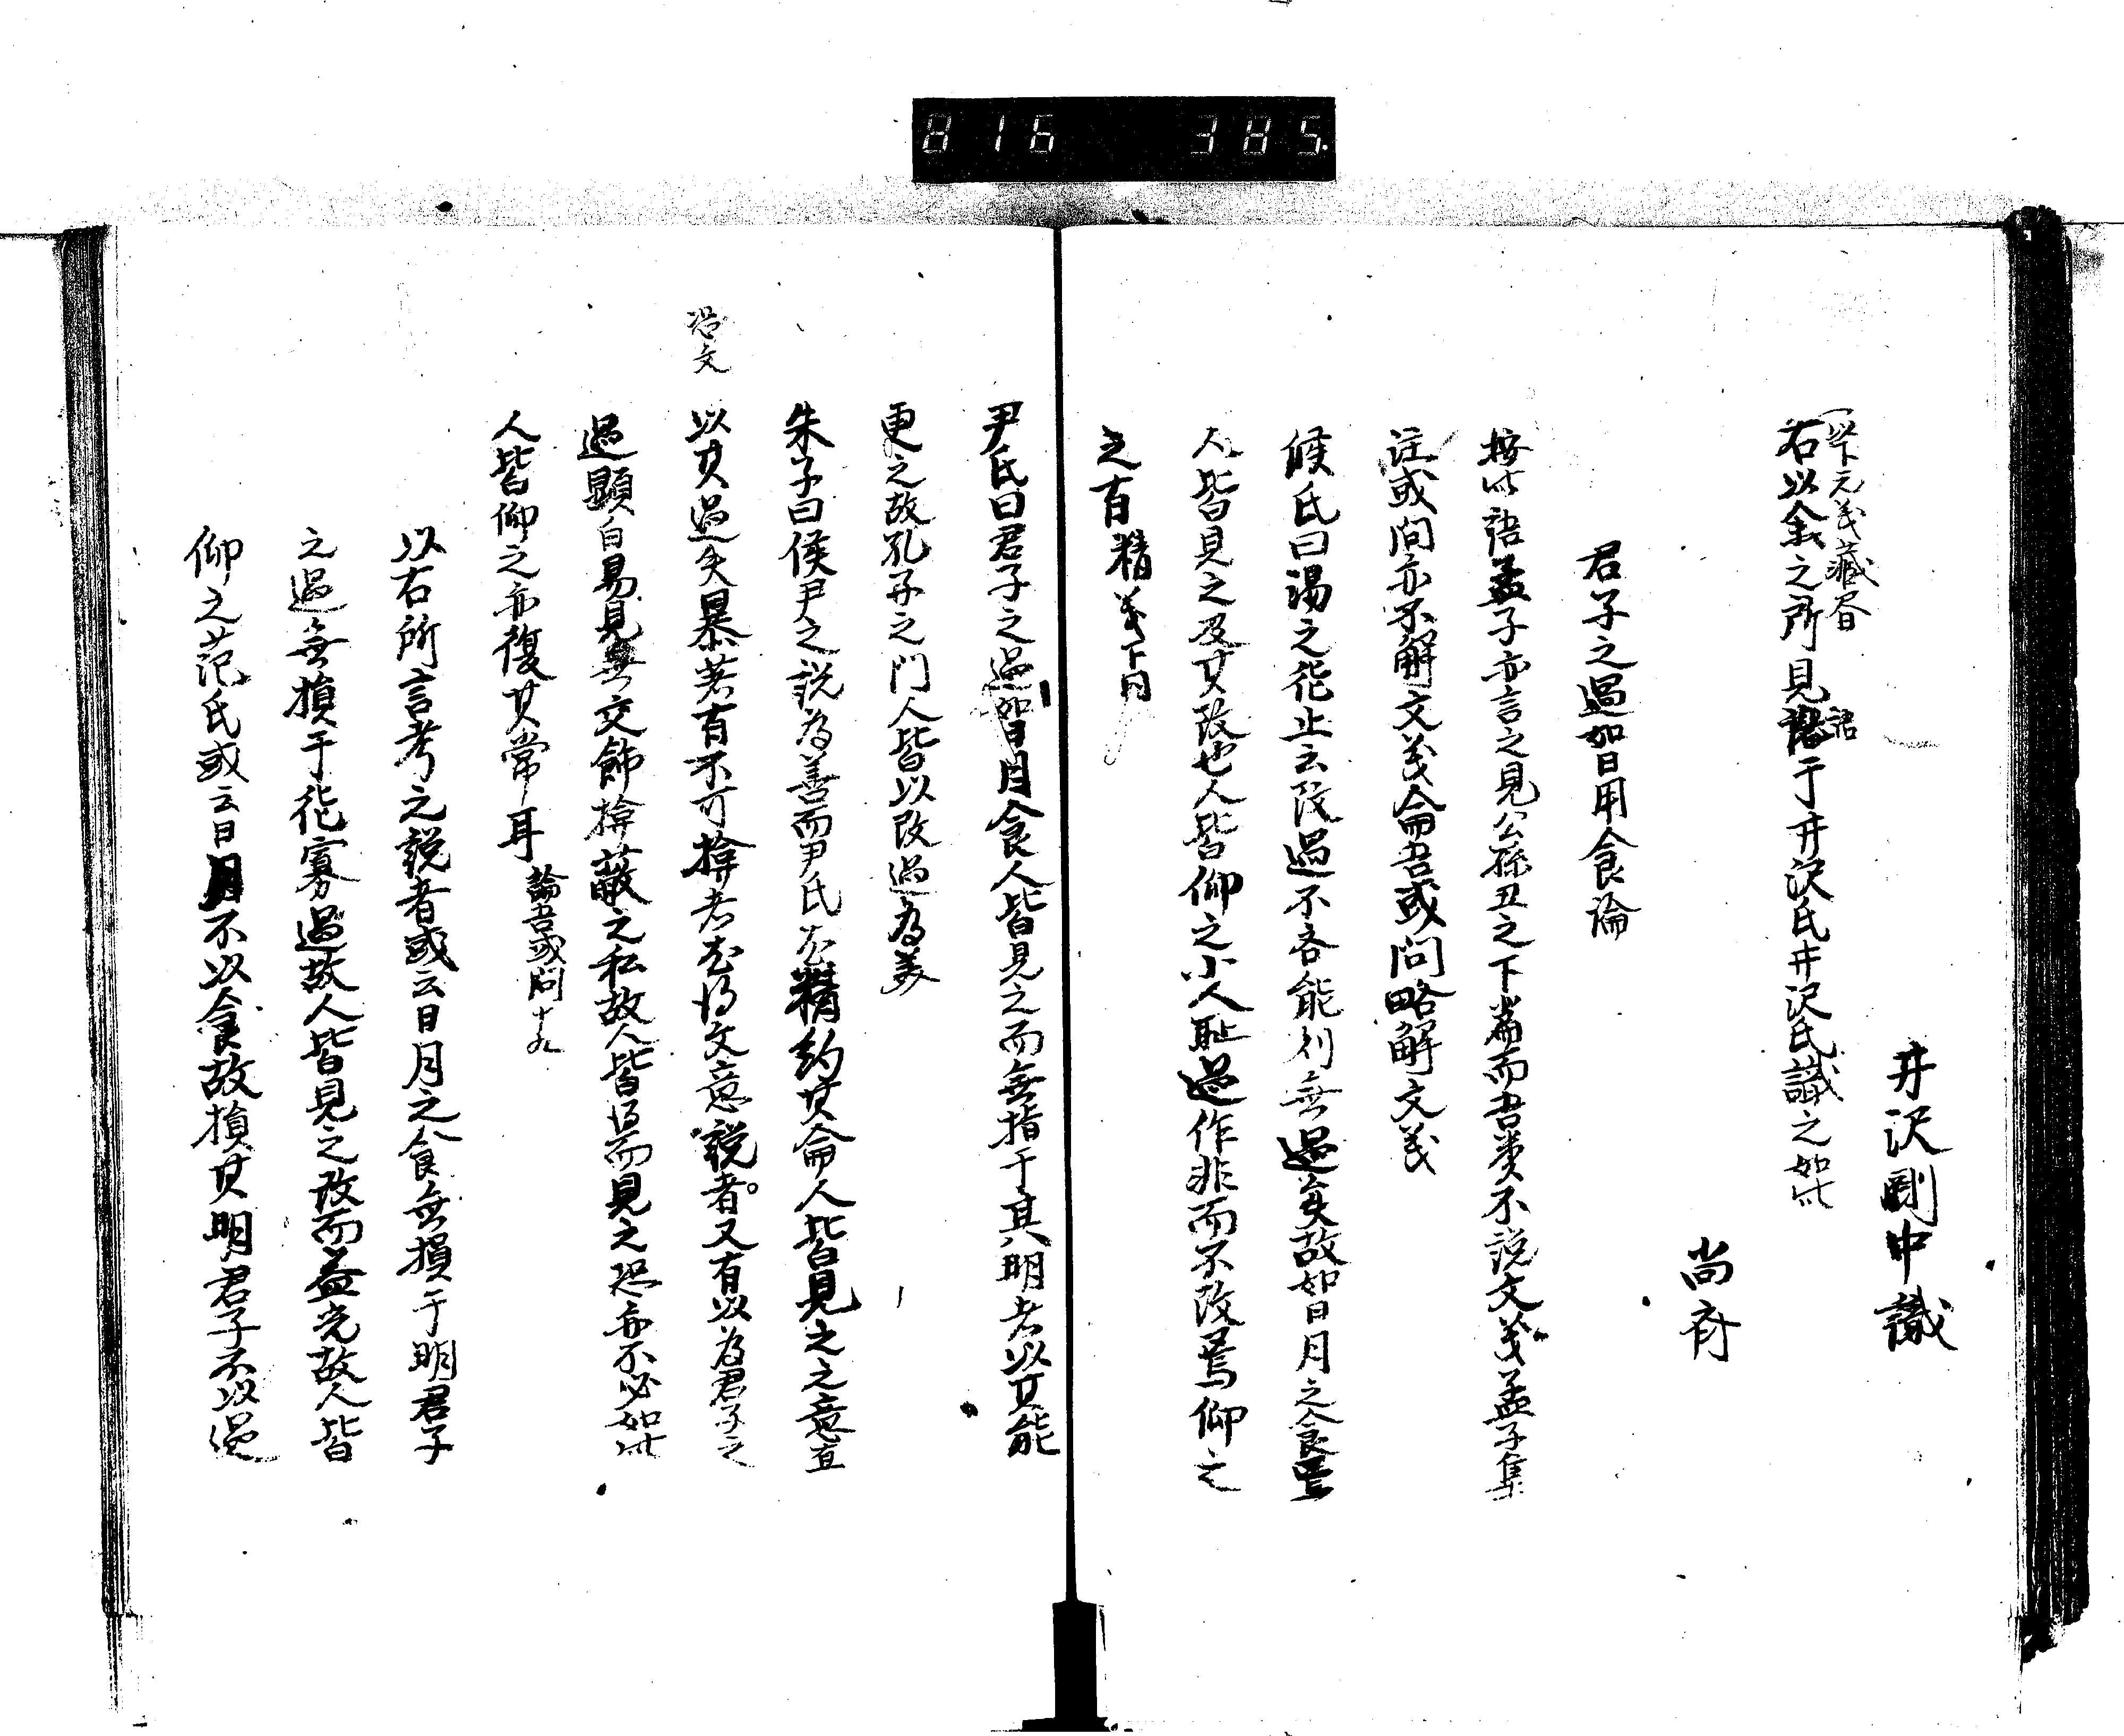 816 385
井沢剛中識
以下元義蔵
右以金之所見 于井沢氏井沢氏識之如此
尚斎
君子之過如日用食論
按此語孟子亦言之見公孫丑之下篇而吾類不説文義孟子集
註或問亦不解文義侖吾或問略解文義
候氏曰湯之徳止云改過不吝能則無過矣故如日月之食焉
人皆見之及其改也人皆仰之小人耻過作非而不改焉仰之
之有 精義下同
尹氏曰君子之過如日月食人皆見之而無指于其明者以其能
更之故孔子之門人皆以改過為美
朱子曰侯尹之説為善而尹氏尤精約其侖人皆見之之意直
以其過失暴著有不可揜者尤得文意説者又有以為君子之
過顕白易見無文飾揜蔽之私故人皆得而見之恐亦不必如此
人皆仰之亦復其常耳 論吾或問十九
以右所言考之説者或云日月之食無損于明君子
之過無損于徳寡過故人皆見之改而益光故人皆
仰之范氏或云日月不以食故損其明君子不以過